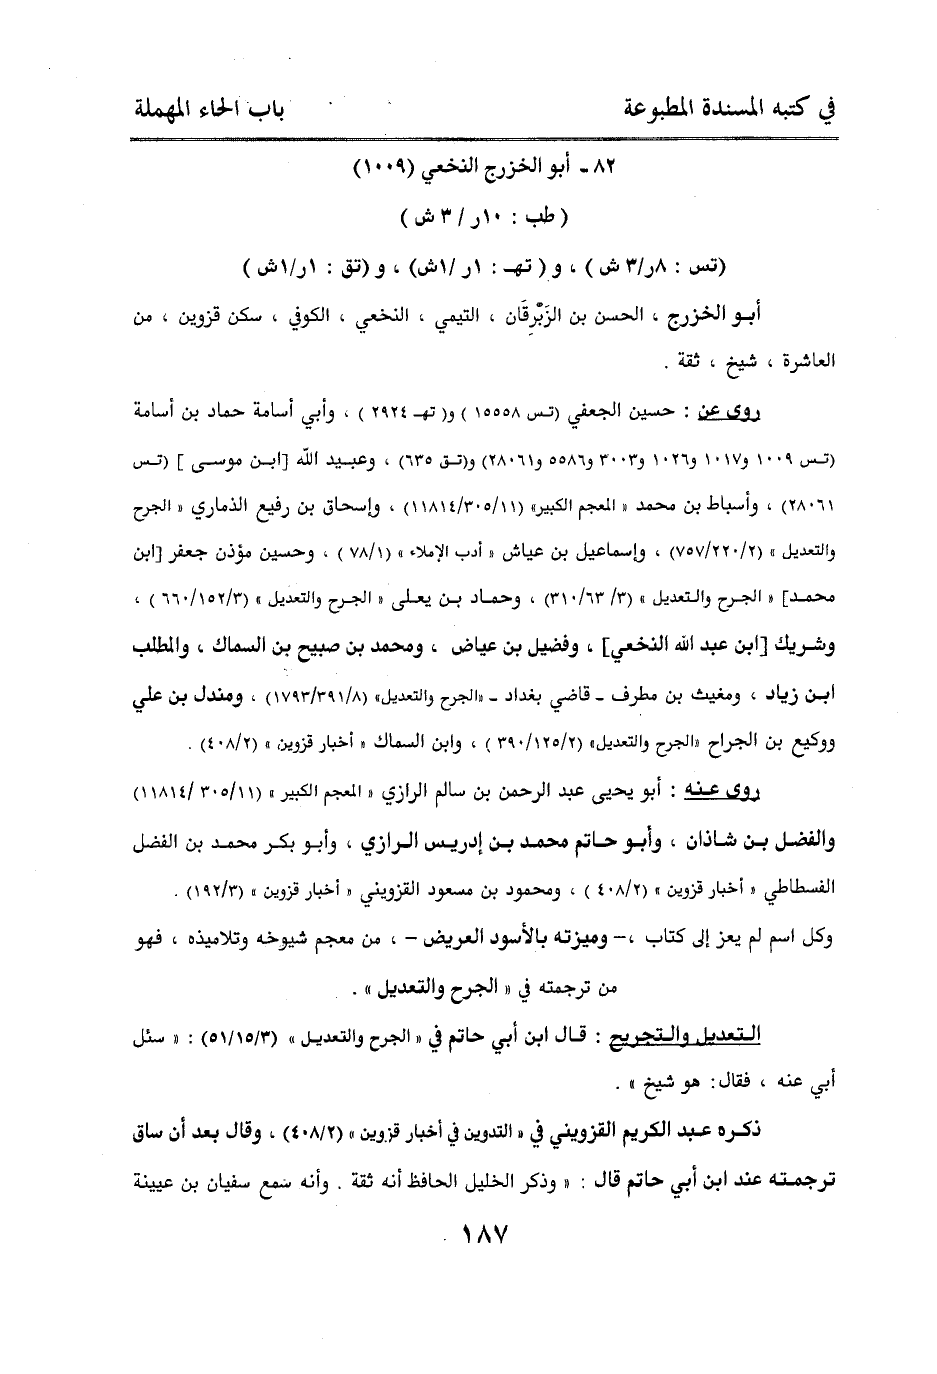 في كتبه المسندة المطبوعة باب الحاء المهملة
٨٢ ـ أبو الخزرج النخعي (١٠٠٩)
( طب : ١٠ر / ٣ ش )
(تس : ٨ر/٣ ش ) ، و ( تهـ : ١ر /١ش) ، و (تق : ١ر/١ش )
أبـو الخزرج ، الحسن بن الزِّبْرِقَان ، التيمي ، النخعي ، الكوفي ، سكن قزوين ، من
العاشرة ، شيخ ، ثقة .
روى عن : حسين الجعفي (تس ١٥٥٥٨ ) و( تهـ ٢٩٢٤ ) ، وأبي أسامة حماد بن أسامة
(تـس ١٠٠٩ و١٠١٧ و١٠٢٦ و٣٠٠٣ و٥٥٨٦ و٢٨٠٦١) و(تـق ٦٣٥) ، وعبـيد الله [ابـن موسـى ] (تـس
٢٨٠٦١) ، وأسباط بن محمد « المعجم الكبير» (١١٨١٤/٣٠٥/١١) ، وإسحاق بن رفيع الذماري « الجرح
والتعديل » (٧٥٧/٢٢٠/٢) ، وإسماعيل بن عياش « أدب الإملاء » (٧٨/١ ) ، وحسين مؤذن جعفر [ابن
محمـد] « الجـرح والتعديل » (٣/ ٣١٠/٦٣) ، وحماد بـن يعـلى « الجـرح والتعديل » (٦٦٠/١٥٢/٣ ) ،
وشريك [ابن عبد الله النخعي] ، وفضيل بن عياض ، ومحمد بن صبيح بن السماك ، والمطلب
ابـن زياد ، ومغيث بن مطرف ـ قاضي بغداد ـ «الجرح والتعديل» (١٧٩٣/٣٩١/٨) ، ومندل بن علي
ووكيع بن الجراح «الجرح والتعديل» (٣٩٠/١٢٥/٢ ) ، وابن السماك « أخبار قزوين » (٤٠٨/٢) .
روى عـنه : أبو يحيى عبد الرحمن بن سالم الرازي « المعجم الكبير » (٣٠٥/١١ /١١٨١٤)
والفضل بـن شـاذان ، وأبـو حـاتم محمـد بـن إدريـس الـرازي ، وأبـو بكـر محمـد بن الفضل
الفسطاطي « أخبار قزوين » (٤٠٨/٢ ) ، ومحمود بن مسعود القزويني « أخبار قزوين » (١٩٢/٣) .
وكل اسم لم يعز إلى كتاب ،– وميزته بالأسود العريض – ، من معجم شيوخه وتلاميذه ، فهو
من ترجمته في « الجرح والتعديل» .
الـتعديل والـتجريح : قـال ابن أبي حاتم في « الجرح والتعديـل » (٥١/١٥/٣) : « سئل
أبي عنه ، فقال: هو شيخ » .
ذكـره عـبد الكريم القزويني في « التدوين في أخبار قزوين » (٤٠٨/٢) ، وقال بعد أن ساق
ترجمـته عند ابن أبي حاتم قال : « وذكر الخليل الحافظ أنه ثقة . وأنه سمع سفيان بن عيينة
١٨٧